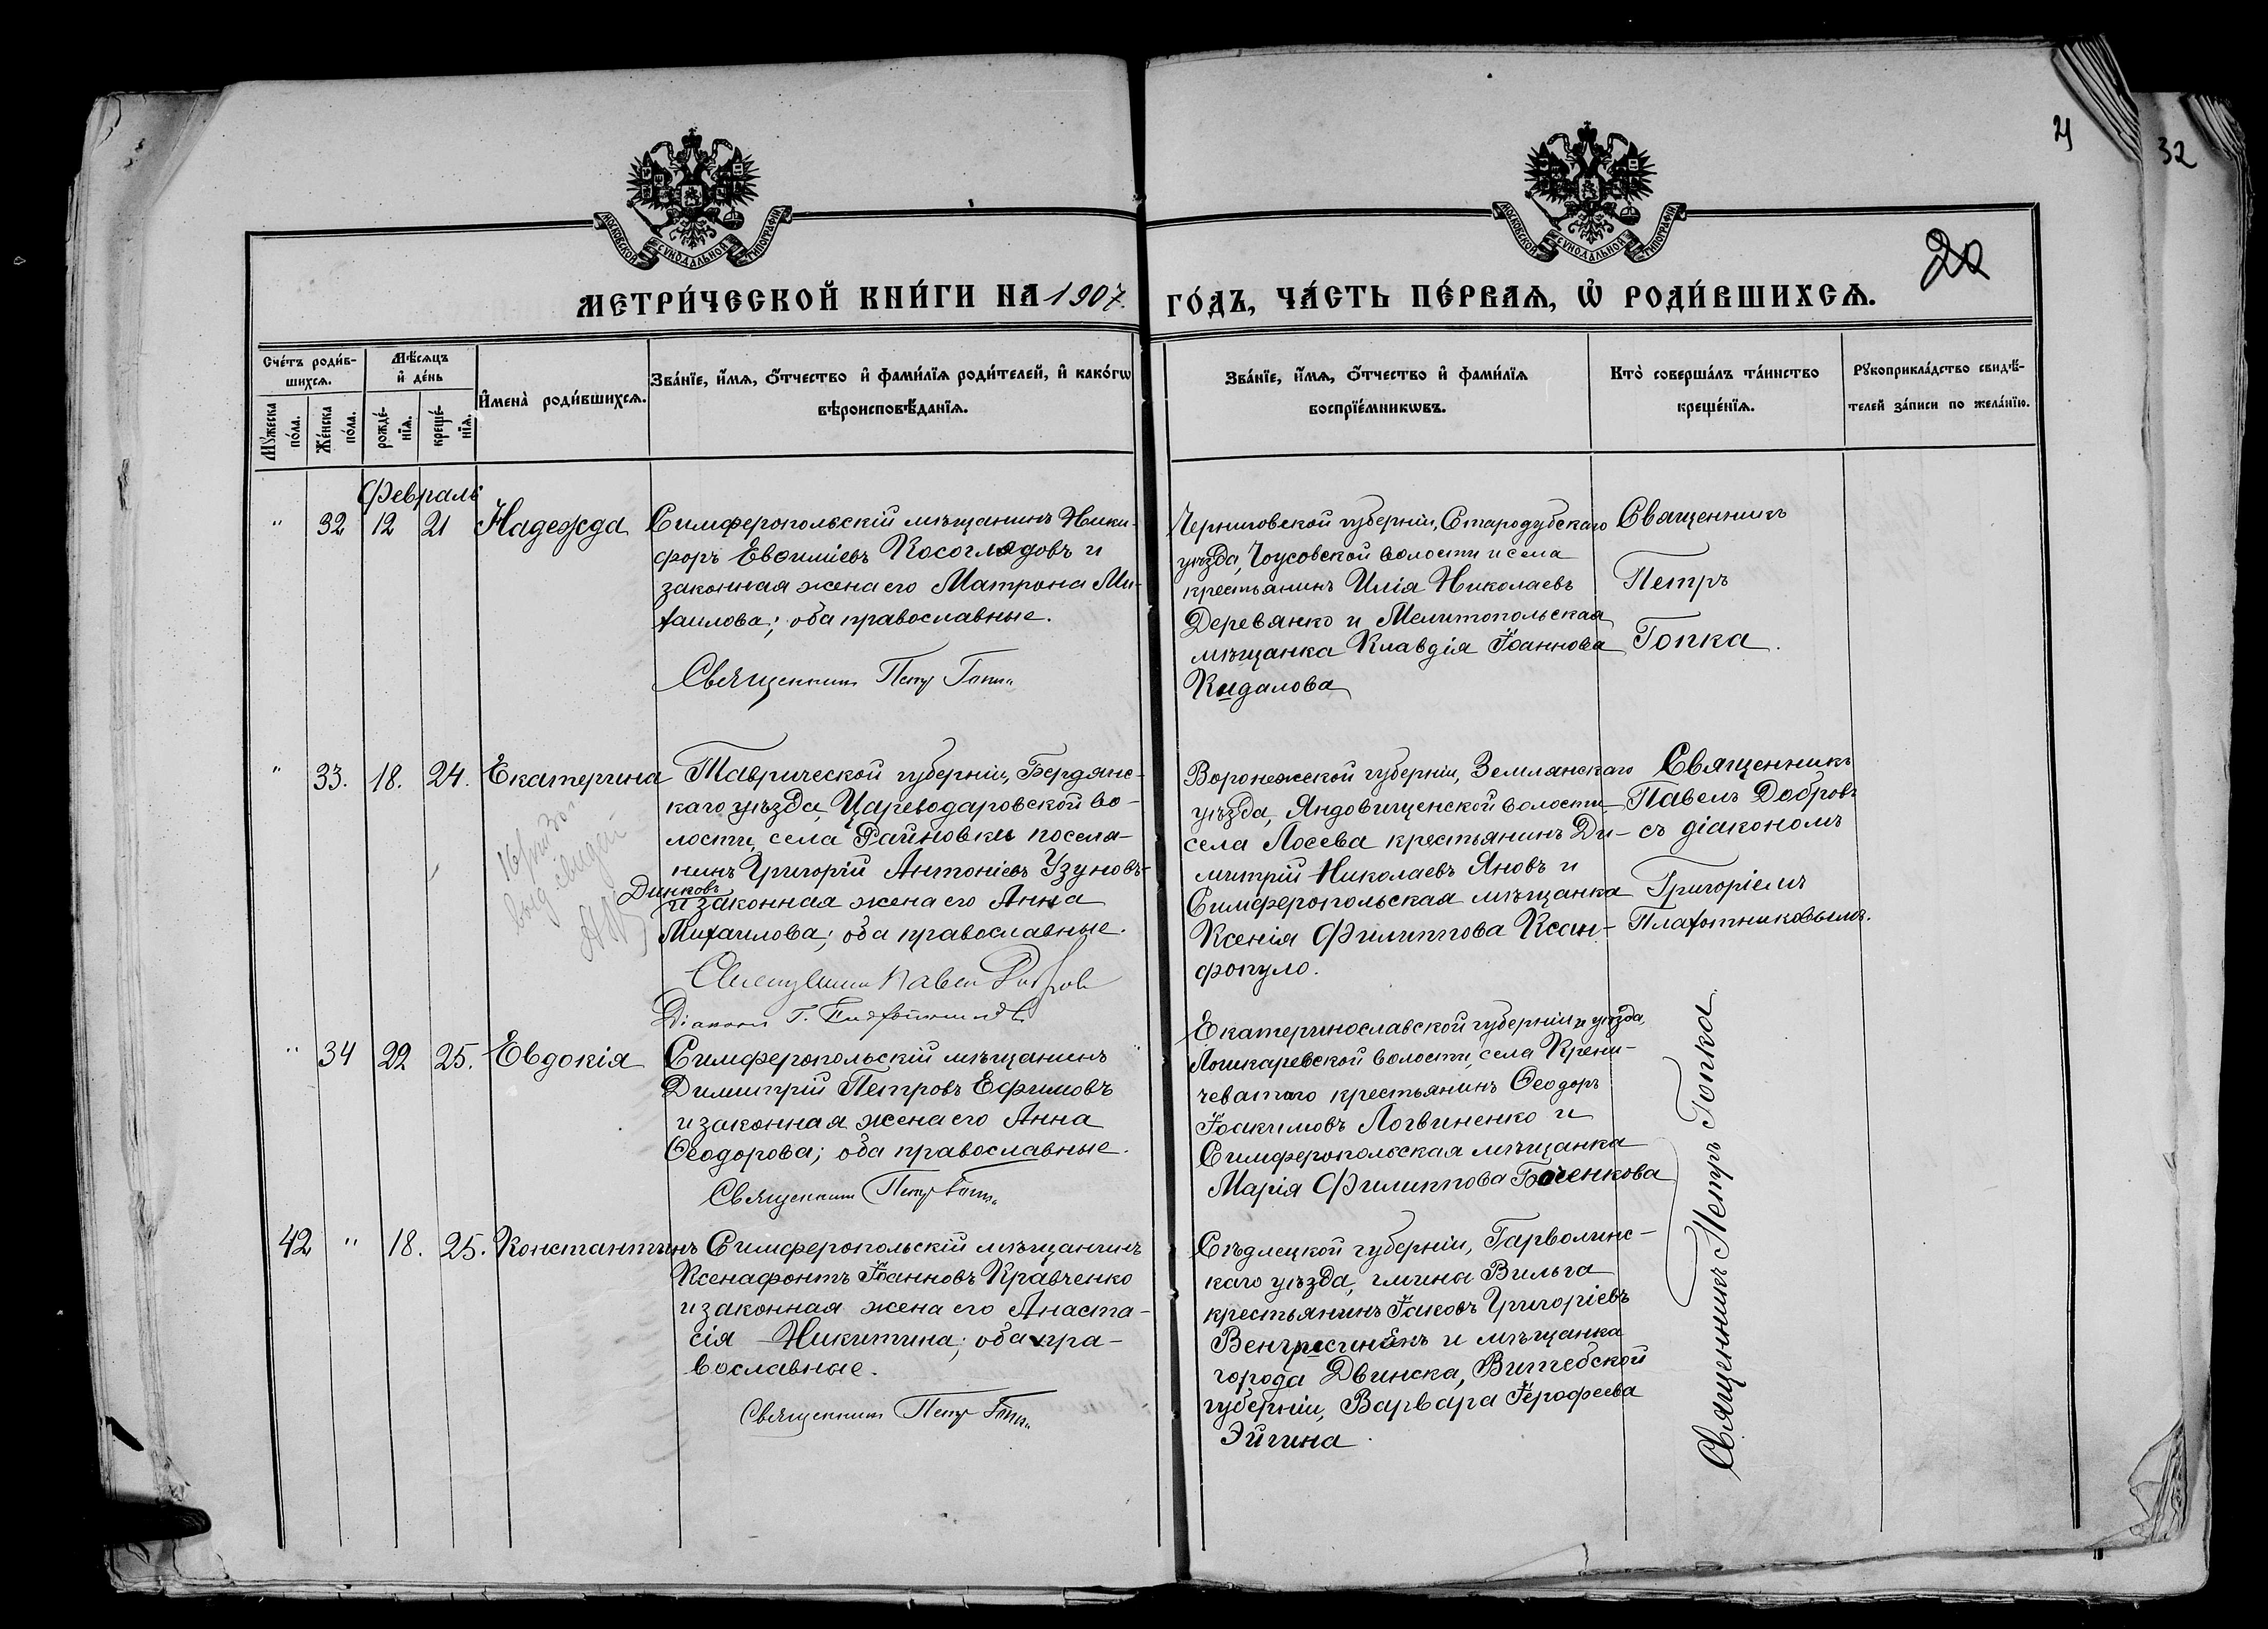 21
32
20
МОСКОВСКОЙ СѴНОДАЛЬНОЙ ТИПОГРАФІИ
МОСКОВСКОЙ СѴНОДАЛЬНОЙ ТИПОГРАФІИ
МЕТРИ́ЧЕСКОЙ КНИ́ГИ НА 1907.
ГО́ДЪ, ЧА́СТЬ ПЕ́РВАѦ, Ѡ҆ РОДИ́ВШИХСѦ.
Сче́тъ роди́в-
шихсѧ.
Мѣ́сѧцъ
и҆ де́нь
Мꙋ́жеска
по́ла.
Же́нска
по́ла.
рожде́-
нїѧ.
креще́-
нїѧ.
И҆мена̀ роди́вшихсѧ.
Зва́нїе, и҆́мѧ, ѻ҆́тчество и҆ фами́лїѧ роди́телей, и҆ како́гѡ
вѣроисповѣ́данїѧ.
Зва́нїе, и҆́мѧ, ѻ҆́тчество и҆ фами́лїѧ
воспрїе́мникѡвъ.
Кто̀ соверша́лъ та́инство
креще́нїѧ.
Рꙋкоприкла́дство свидѣ́-
телей за́писи по жела́нїю.
Февраль
" 32 12 21 Надежда
Симферопольскій мѣщанинъ Ники-
форъ Евѳиміевъ Косоглядовъ и
законная жена его Матрона Ми-
хаилова; оба православные.
Священникъ Петръ Гопка
Черниговской губерніи, Стародубскаго
уѣзда, Чоусовской волости и села
крестьянинъ Илія Николаевъ
Деревянко и Мелитопольская
мѣщанка Клавдія Іоаннова
Кидалова
Священникъ
Петръ
Гопка.
" 33. 18. 24. Екатерина
Таврической губерніи, Бердянс-
каго уѣзда, Цареводаровской во-
лости, села Райновки поселя-
нинъ Григорій Антоніевъ Узуновъ-
Динковъ
и законная жена его Анна
Михаилова; оба православные.
Священникъ Павелъ Добровъ
Діаконъ Г. Плахотниковъ
Воронежской губерніи, Землянскаго
уѣзда, Яндовищенской волости
села Лосева крестьянинъ Ди-
митрій Николаевъ Яновъ и
Симферопольская мѣщанка
Ксенія Филиппова Ксан-
фопуло.
Священникъ
Павелъ Добровъ
съ діакономъ
Григоріемъ
Плахотниковымъ.
" 34 22 25. Евдокія
Симферопольскій мѣщанинъ
Димитрій Петровъ Ефимовъ
и законная жена его Анна
Ѳеодорова; оба православные.
Священникъ Петръ Гопка
Екатеринославской губерніи и уѣзда,
Лошкаревской волости, села Крени-
чеватаго крестьянинъ Ѳеодоръ
Іоакимовъ Логвиненко и
Симферопольская мѣщанка
Марія Филиппова
42 " 18. 25. Константинъ
Симферопольскій мѣщанинъ
Ксенафонтъ Іоанновъ Кравченко
и законная жена его Анаста-
сія Никитина; оба пра-
вославные.
Священникъ Петръ Гопка
Сѣдлецкой губерніи, Гарволинс-
каго уѣзда, гмина Вильга
крестьянинъ Іаковъ Григоріевъ
и мѣщанка
города Двинска, Витебской
губерніи, Варвара Іерофеева
Эйгина.
Священникъ Петръ Гопка